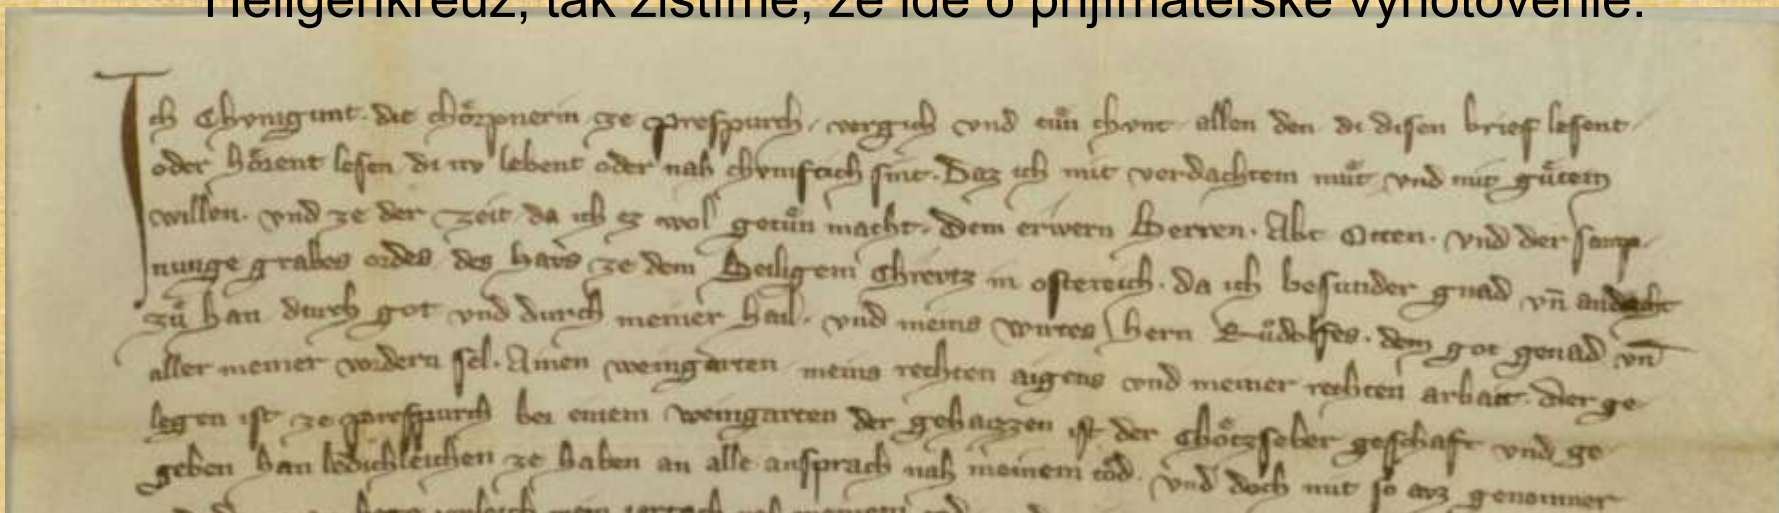 Heiligenkreuz, tak zistíme, že ide o prijímateľské vyhotovenie.
Ich Chvnigunt die chörpnerin ze prespurch, vergich vnd tün chvnt allen den di disen brief lesent
oder hörent lesen di nv lebent oder nah chvmftich sint. Daz ich mit verdachtem müt vnd mit gütem
willen. vnd ze der zeit da ich ez wol getün macht. Dem erwern Herren. Abt Otten. vnd der samp
nunge grabes ordes des haws ze dem Heiligem Chrevtz in ostereich. da ich besunder gnad vn̄ andacht
zü han durch got vnd durch meiner hail. vnd meins wirtes hern Rüdolfes. dem got genad vn̄
aller meiner vordern sel. Ainen weingarten meins rechten aigens vnd meiner rechten arbait. der ge
legen ist ze prespurch bei einem weingarten der gehaizzen ist der geschaft vnd ge
geben han ledichleichen ze haben an alle ansprach nah meinem tod. vnd doch mit so genomner